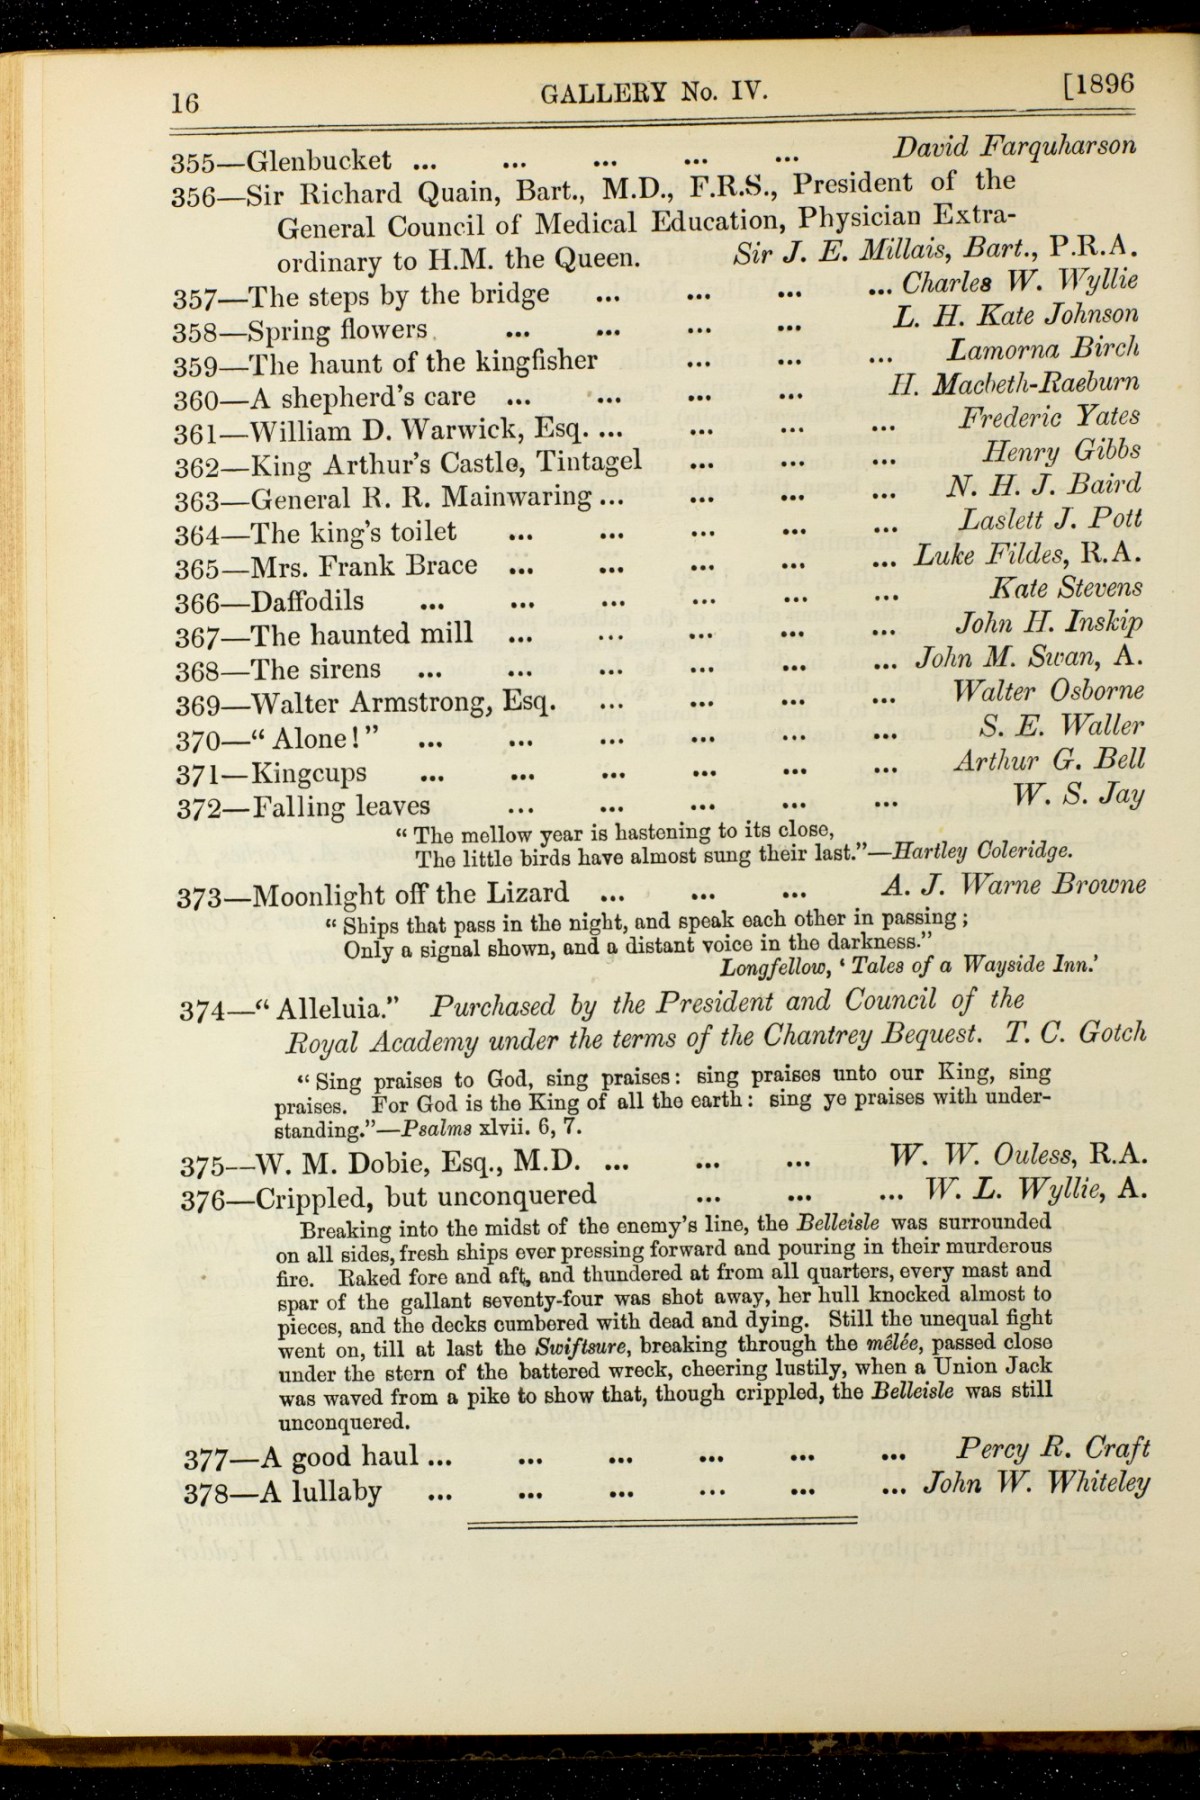 16 GALLERY No. IV. [1896
355—Glenbucket ... ... ... ... ... David Farquharson
356—Sir Richard Quain, Bart., M.D., F.R.S., President of the
General Council of Medical Education, Physician Extra-
ordinary to H.M. the Queen. Sir J. E. Millais, Bart., P.R.A.
357—The steps by the bridge ... ... ... ... Charles W. Wyllie
358—Spring flowers ... ... ... ... L. H. Kate Johnson
359—The haunt of the kingfisher ... ... ... Lamorna Birch
360—A shepherd's care ... ... ... ... H. Macbeth-Raeburn
361—William D. Warwick, Esq. ... ... ... ... Frederic Yates
362—King Arthur's Castle, Tintagel ... ... ... Henry Gibbs
363—General R. R. Mainwaring ... ... ... ... N. H. J. Baird
364—The king's toilet ... ... ... ... ... Laslett J. Pott
365—Mrs. Frank Brace ... ... ... ... ... Luke Fildes, R.A.
366—Daffodils ... ... ... ... ... ... Kate Stevens
367—The haunted mill ... ... ... ... ... John H. Inskip
368—The sirens ... ... ... ... ... ... John M. Swan, A.
369—Walter Armstrong, Esq. ... ... ... ... Walter Osborne
370—“ Alone! ” ... ... ... ... ... ... S. E. Waller
371—Kingcups ... ... ... ... ... ... Arthur G. Bell
372—Falling leaves ... ... ... ... ... W. S. Jay
“ The mellow year is hastening to its close,
The little birds have almost sung their last.”—Hartley Coleridge.
373—Moonlight off the Lizard ... ... ... A. J. Warne Browne
“ Ships that pass in the night, and speak each other in passing ;
Only a signal shown, and a distant voice in the darkness.”
Longfellow, ‘ Tales of a Wayside Inn.’
374—“ Alleluia.” Purchased by the President and Council of the
Royal Academy under the terms of the Chantrey Bequest. T. C. Gotch
“ Sing praises to God, sing praises: sing praises unto our King, sing
praises. For God is the King of all the earth : sing ye praises with under-
standing.”—Psalms xlvii. 6, 7.
375—W. M. Dobie, Esq., M.D. ... ... ... W. W. Ouless, R.A.
376—Crippled, but unconquered ... ... ... W. L. Wyllie, A.
Breaking into the midst of the enemy's line, the Belleisle was surrounded
on all sides, fresh ships ever pressing forward and pouring in their murderous
fire. Raked fore and aft, and thundered at from all quarters, every mast and
spar of the gallant seventy-four was shot away, her hull knocked almost to
pieces, and the decks cumbered with dead and dying. Still the unequal fight
went on, till at last the Swiftsure, breaking through the mêlée, passed close
under the stern of the battered wreck, cheering lustily, when a Union Jack
was waved from a pike to show that, though crippled, the Belleisle was still
unconquered.
377—A good haul ... ... ... ... ... ... Percy R. Craft
378—A lullaby ... ... ... ... ... ... John W. Whiteley